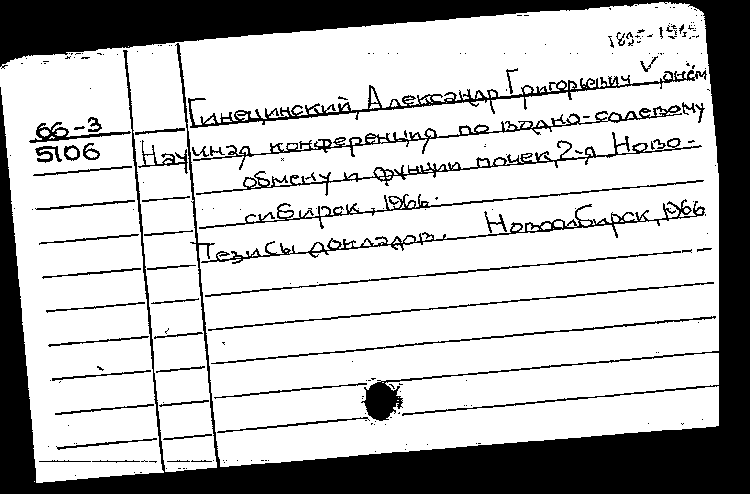 1895-1962
Гинецинский, Александр Григорьевич, о нём
66-3
5106
Научная конференция по водно-солевому
обмену и функции почек, 2-я, Ново-
сибирск, 1966.
Тезисы докладов. Новосибирск, 1966